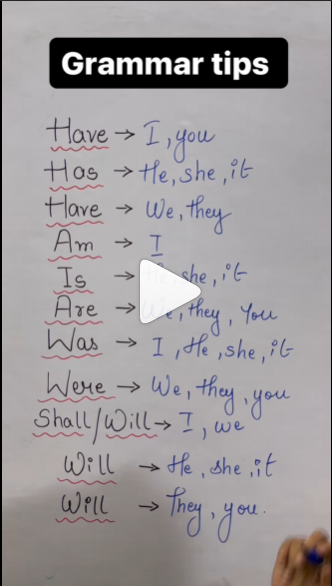 Grammar tips
Have → I, you
Has → He, she, it
Have → We, they
Am → I
Is → He, she, it
Are → We, they, You
Was → I, He, she, it
Were → We, they, you
Shall/Will → I, we
Will → He, she, it
Will → They, you.